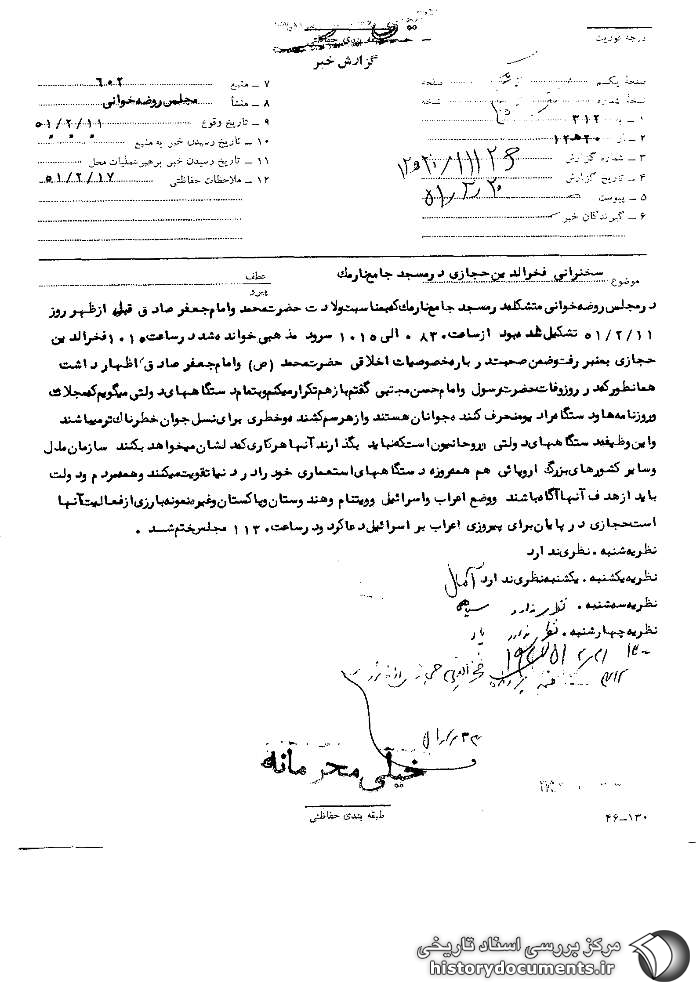 گزارش خبر
درجه فوریت
صفحهٔ یکم
صفحه
نسخهٔ شماره
نسخه
۱ ـ به ۳۱۲
۲ ـ از ۲۰ ه‍ ۱۲
۳ ـ شماره گزارش
۴ ـ تاریخ گزارش
۵ ـ پیوست
۶ ـ گیرندگان خبر
۷ ـ منبع ۶۰۲
۸ ـ منشأ مجلس روضه خوانی
۹ ـ تاریخ وقوع ۵۱/۲/۱۱
۱۰ ـ تاریخ رسیدن خبر به منبع
۱۱ ـ تاریخ رسیدن خبر برهبر عملیات محل
۱۲ ـ ملاحظات حفاظتی ۵۱/۲/۱۷
موضوع سخنرانی فخرالدین حجازی در مسجد جامع نارمک
عطف
پیرو
در مجلس روضه خوانی متشکله در مسجد جامع نارمک که بمناسبت ولادت حضرت محمد و امام جعفر صادق قبل از ظهر روز
۵۱/۲/۱۱ تشکیل شده بود از ساعت ۸۳۰ الی ۱۰۱۵ سرود مذهبی خوانده شد در ساعت ۱۰۱۵ فخرالدین
حجازی بمنبر رفت و ضمن صحبت درباره خصوصیات اخلاقی حضرت محمد (ص) و امام جعفر صادق اظهار داشت
همانطور که در روز وفات حضرت رسول و امام حسن مجتبی گفتم باز هم تکرار میکنم و بتمام دستگاههای دولتی میگویم که مجلات
و روزنامه ها و دستگاه رادیو منحرف کننده جوانان هستند و از هر سم کشنده و خطری برای نسل جوان خطرناک تر میباشند
و این وظیفه دستگاههای دولتی و روحانیون است که نباید بگذارند آنها هر کاری که دلشان میخواهد بکنند سازمان ملل
و سایر کشورهای بزرگ اروپائی هم همه روزه دستگاههای استعماری خود را در دنیا تقویت میکنند و همه مردم و دولت
باید از هدف آنها آگاه باشند و وضع اعراب و اسرائیل و ویتنام و هندوستان و پاکستان و غیره نمونه بارزی از فعالیت آنها
است حجازی در پایان برای پیروزی اعراب بر اسرائیل دعا کرد و در ساعت ۱۱۳۰ مجلس ختم شد .
نظریه شنبه . نظری ندارد
نظریه یکشنبه . یکشنبه نظری ندارد آمال
نظریه سه شنبه . نظری ندارد
نظریه چهارشنبه . نظری ندارد
خیلی محرمانه
طبقه بندی حفاظتی
۴۶-۱۳۰
مرکز بررسی اسناد تاریخی
historydocuments.ir